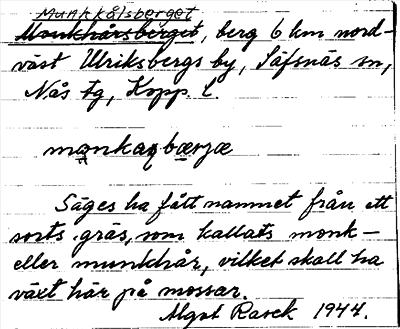 Munkkålsberget
Monkhårsberget, berg 6 km nord-
väst Ulriksbergs by, Säfsnäs sn,
Nås tg, Kopp. l.
Säges ha fått namnet från ett
sorts gräs, som kallats monk-
eller munkhår, vilket skall ha
växt här på mossar.
Algot Rasck 1944.